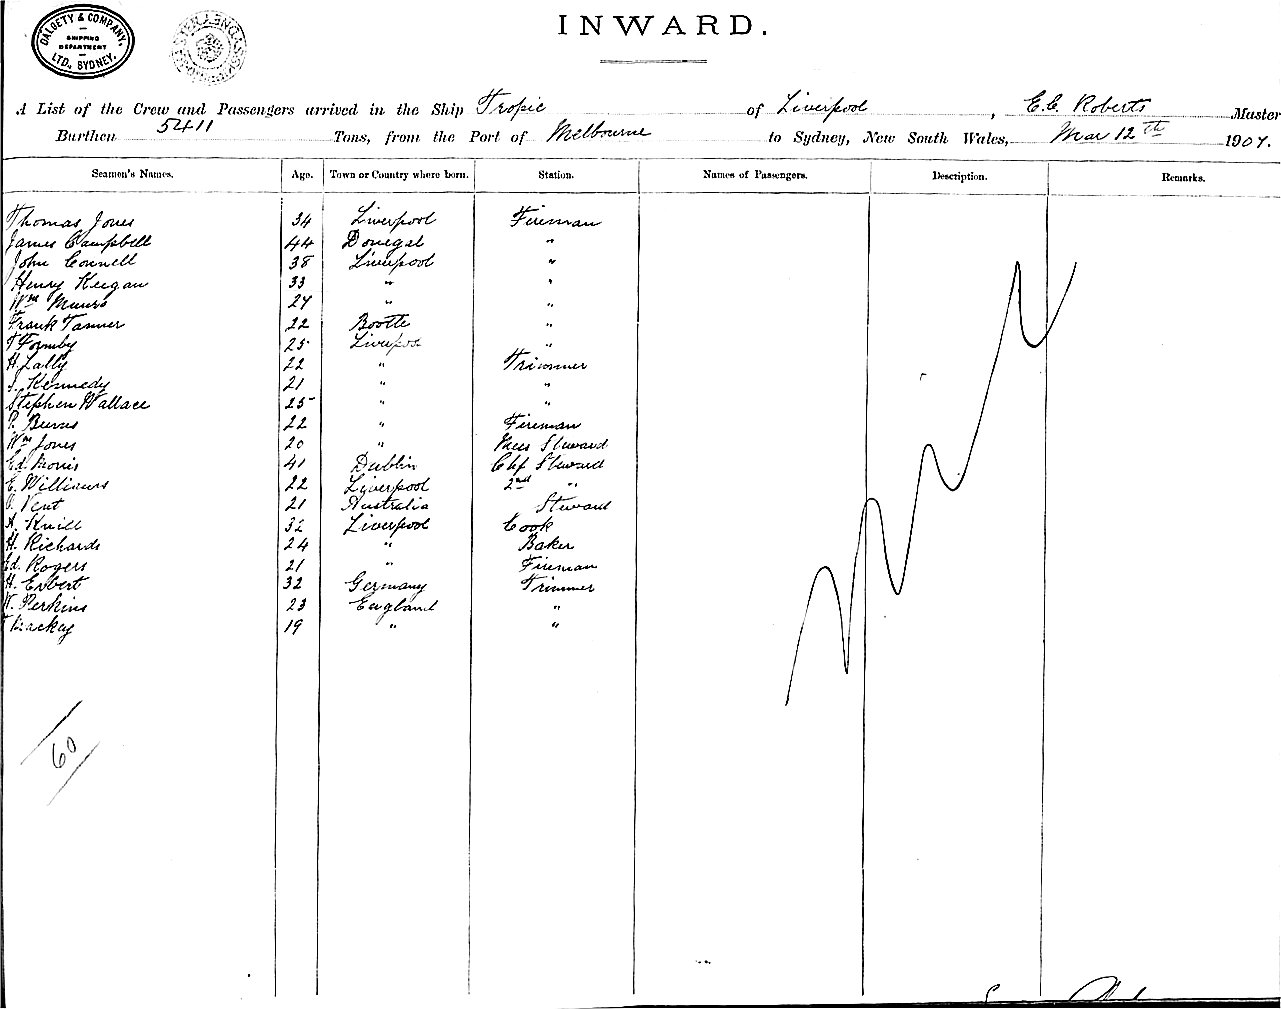 DALGETY & COMPANY, LTD. SYDNEY.
SHIPPING DEPARTMENT
INWARD.
A List of the Crew and Passengers arrived in the Ship Tropic of Liverpool, E.C. Roberts Master
Burthen 5411 Tons, from the Port of Melbourne to Sydney, New South Wales, Mar 12th 1907.
Seamen's Names. Age. Town or Country where born. Station. Names of Passengers. Description. Remarks.
Thomas Jones 34 Liverpool Fireman
James Campbell 44 Donegal "
John Connell 38 Liverpool "
Henry Keegan 33 " "
Wm Munro 27 " "
Frank Tanner 22 Bootle "
T Formby 25 Liverpool "
H. Lally 22 " Trimmer
J. Kennedy 21 " "
Stephen Wallace 25 " "
P. Burns 22 " Fireman
Wm Jones 20 " Mess Steward
Ed. Morris 41 Dublin Chf Steward
E. Williams 22 Liverpool 2nd "
Vent 21 Australia Steward
A. Knill 32 Liverpool Cook
H. Richards 24 " Baker
Ed. Rogers 21 " Fireman
H. Erbert 32 Germany Trimmer
W. Perkins 23 England "
T Mackey 19 " "
60